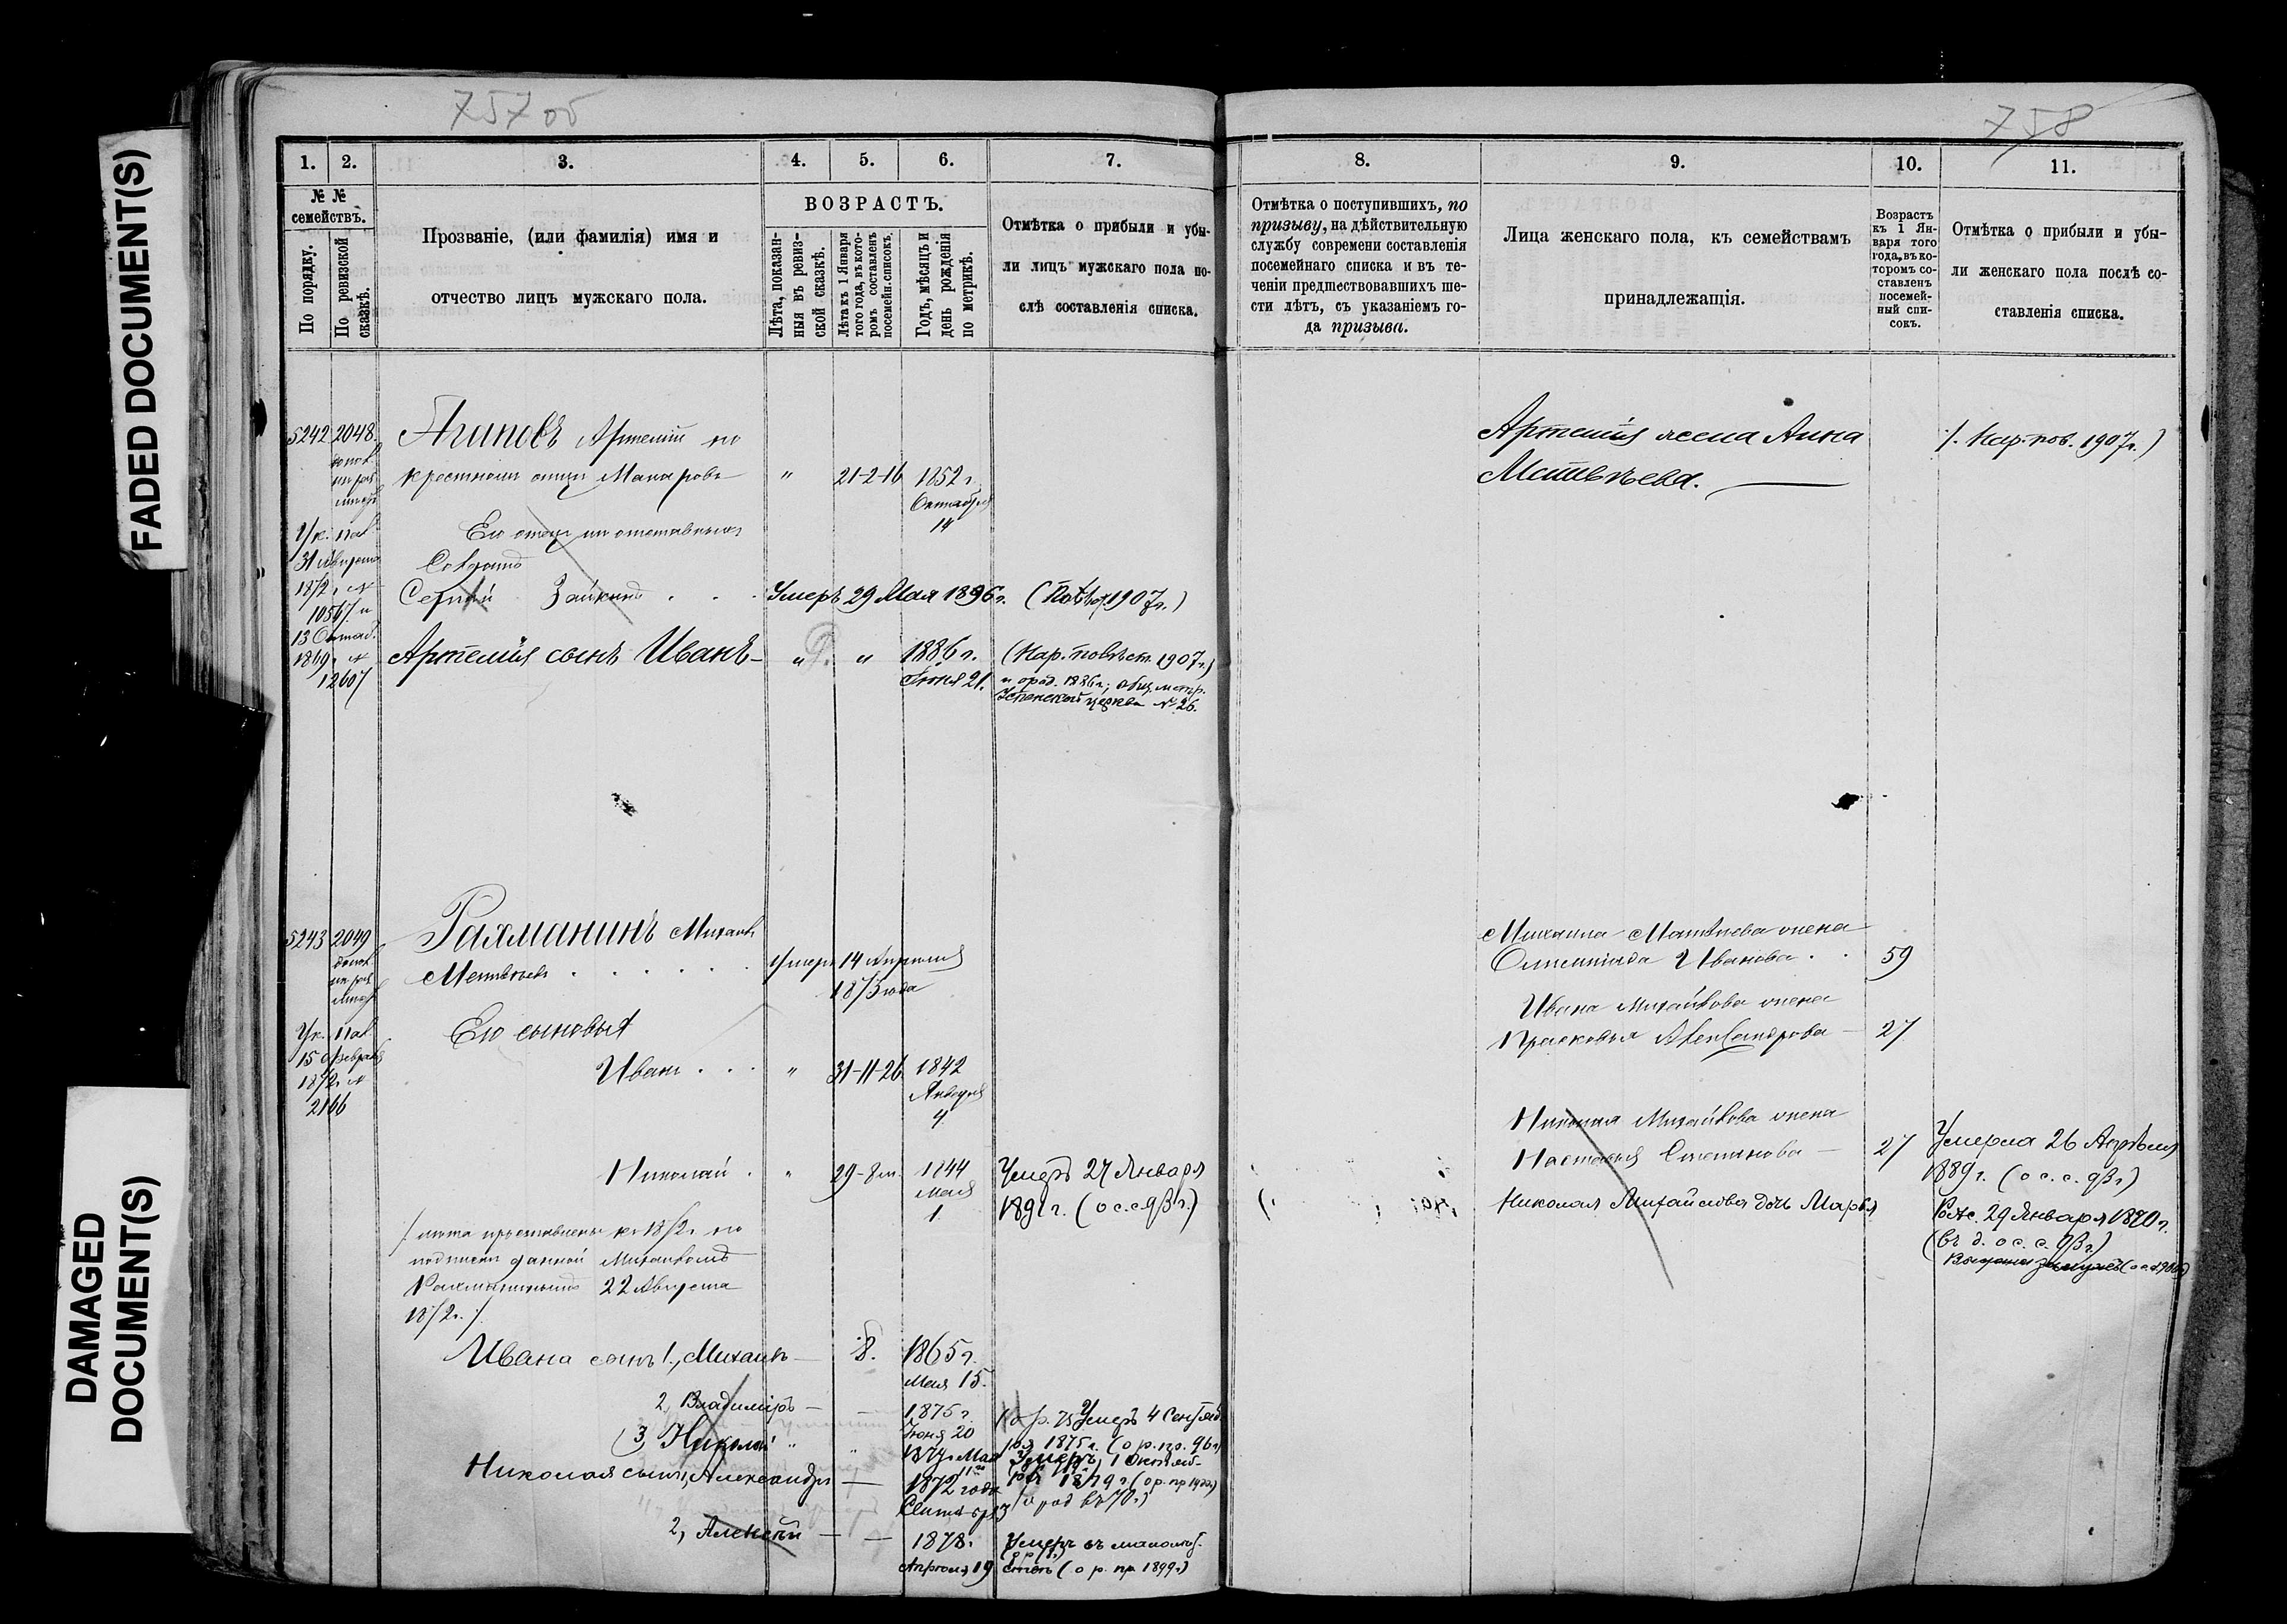 FADED DOCUMENT(S)
DAMAGED
DOCUMENT(S)
757 об
758
1. 2. 3. 4. 5. 6. 7.
№ №
семействъ.
По порядку.
По ревизской
сказкѣ.
Прозваніе, (или фамилія) имя и
отчество лицъ мужскаго пола.
ВОЗРАСТЪ.
Лѣта, показан-
ныя въ ревиз-
ской сказкѣ.
Лѣта къ 1 Января
того года, въ кото-
ромъ составленъ
посемейн. списокъ.
Годъ, мѣсяцъ и
день рожденія
по метрикѣ.
Отмѣтка о прибыли и убы-
ли лицъ мужскаго пола по-
слѣ составленія списка.
5242 2048
Агаповъ Артемій по
крестному отцу Макаровъ " 21-2-16 1852 г.
Октября
14
Ук. Пал
31 Августа
1872 г. №
10567 и
13 Октяб.
1869 г. №
12607
Его отецъ из отставныхъ
Солдатъ
Сергѣй Зайкинъ Умеръ 29 Мая 1896 г. 1907 г.)
Артемія сынъ Иванъ - " " 1886 г. (Кар. повѣст. 1907 г.)
Іюня 21.
Успенской церкви № 26.
5243 2049
Рахманинъ Михаилъ
Матвѣевъ . . . . . . Умеръ 14 Апрѣля
1873 года
Ук. Пал
15 Февраля
1872 г. №
2166
Его сыновья
Иванъ . . . " 31-11-26 1842
Января
4
Николай . " 29-8 м. 1844
Мая
1
Умеръ 27 Января
1891 г.
/ лѣта проставлены по
подписки данной Михаиломъ
Рахманинымъ 22 Августа
1872 г. /.
Ивана сынъ 1., Михаилъ — 8. 1865 г.
Мая 15.
2, Владиміръ — — 1875 г.
Іюня 20
Умеръ 4 Сентяб
ря 1875 г. (о р. пр. 96 г.)
3, Николай " " Мая
11
Умеръ 1 Октяб-
ря 1879 г.
Николая сынъ 1, Александръ — 1872 года
2, Алексѣй — — 1878 г.
Апрѣля 19
Умеръ въ малолѣт.
(о р. пр 1899 г.)
8. 9. 10. 11.
Отмѣтка о поступившихъ, по
призыву, на дѣйствительную
службу современи составленія
посемейнаго списка и въ те-
ченіи предшествовавшихъ ше-
сти лѣтъ, съ указаніемъ го-
да призыва.
Лица женскаго пола, къ семействамъ
принадлежащія.
Возрастъ
къ 1 Ян-
варя того
года, въ ко-
торомъ со-
ставленъ
посемей-
ный спи-
сокъ.
Отмѣтка о прибыли и убы-
ли женскаго пола послѣ со-
ставленія списка.
Артемія жена Анна
Матвѣева. ——
Кар. пов. 1907 г.)
Михаила Матвѣева жена
Олимпіада Иванова . . 59
Ивана Михайлова жена
Прасковья Александрова — 27
Николая Михайлова жена
Настасья Степанова — 27
Умерла 26 Апрѣля
1889 г. (о с. с. 93 г.)
Николая Михайлова дочь Марья
Рожд. 29 Января 1870 г.
(въ д. о с. с. 93 г.)